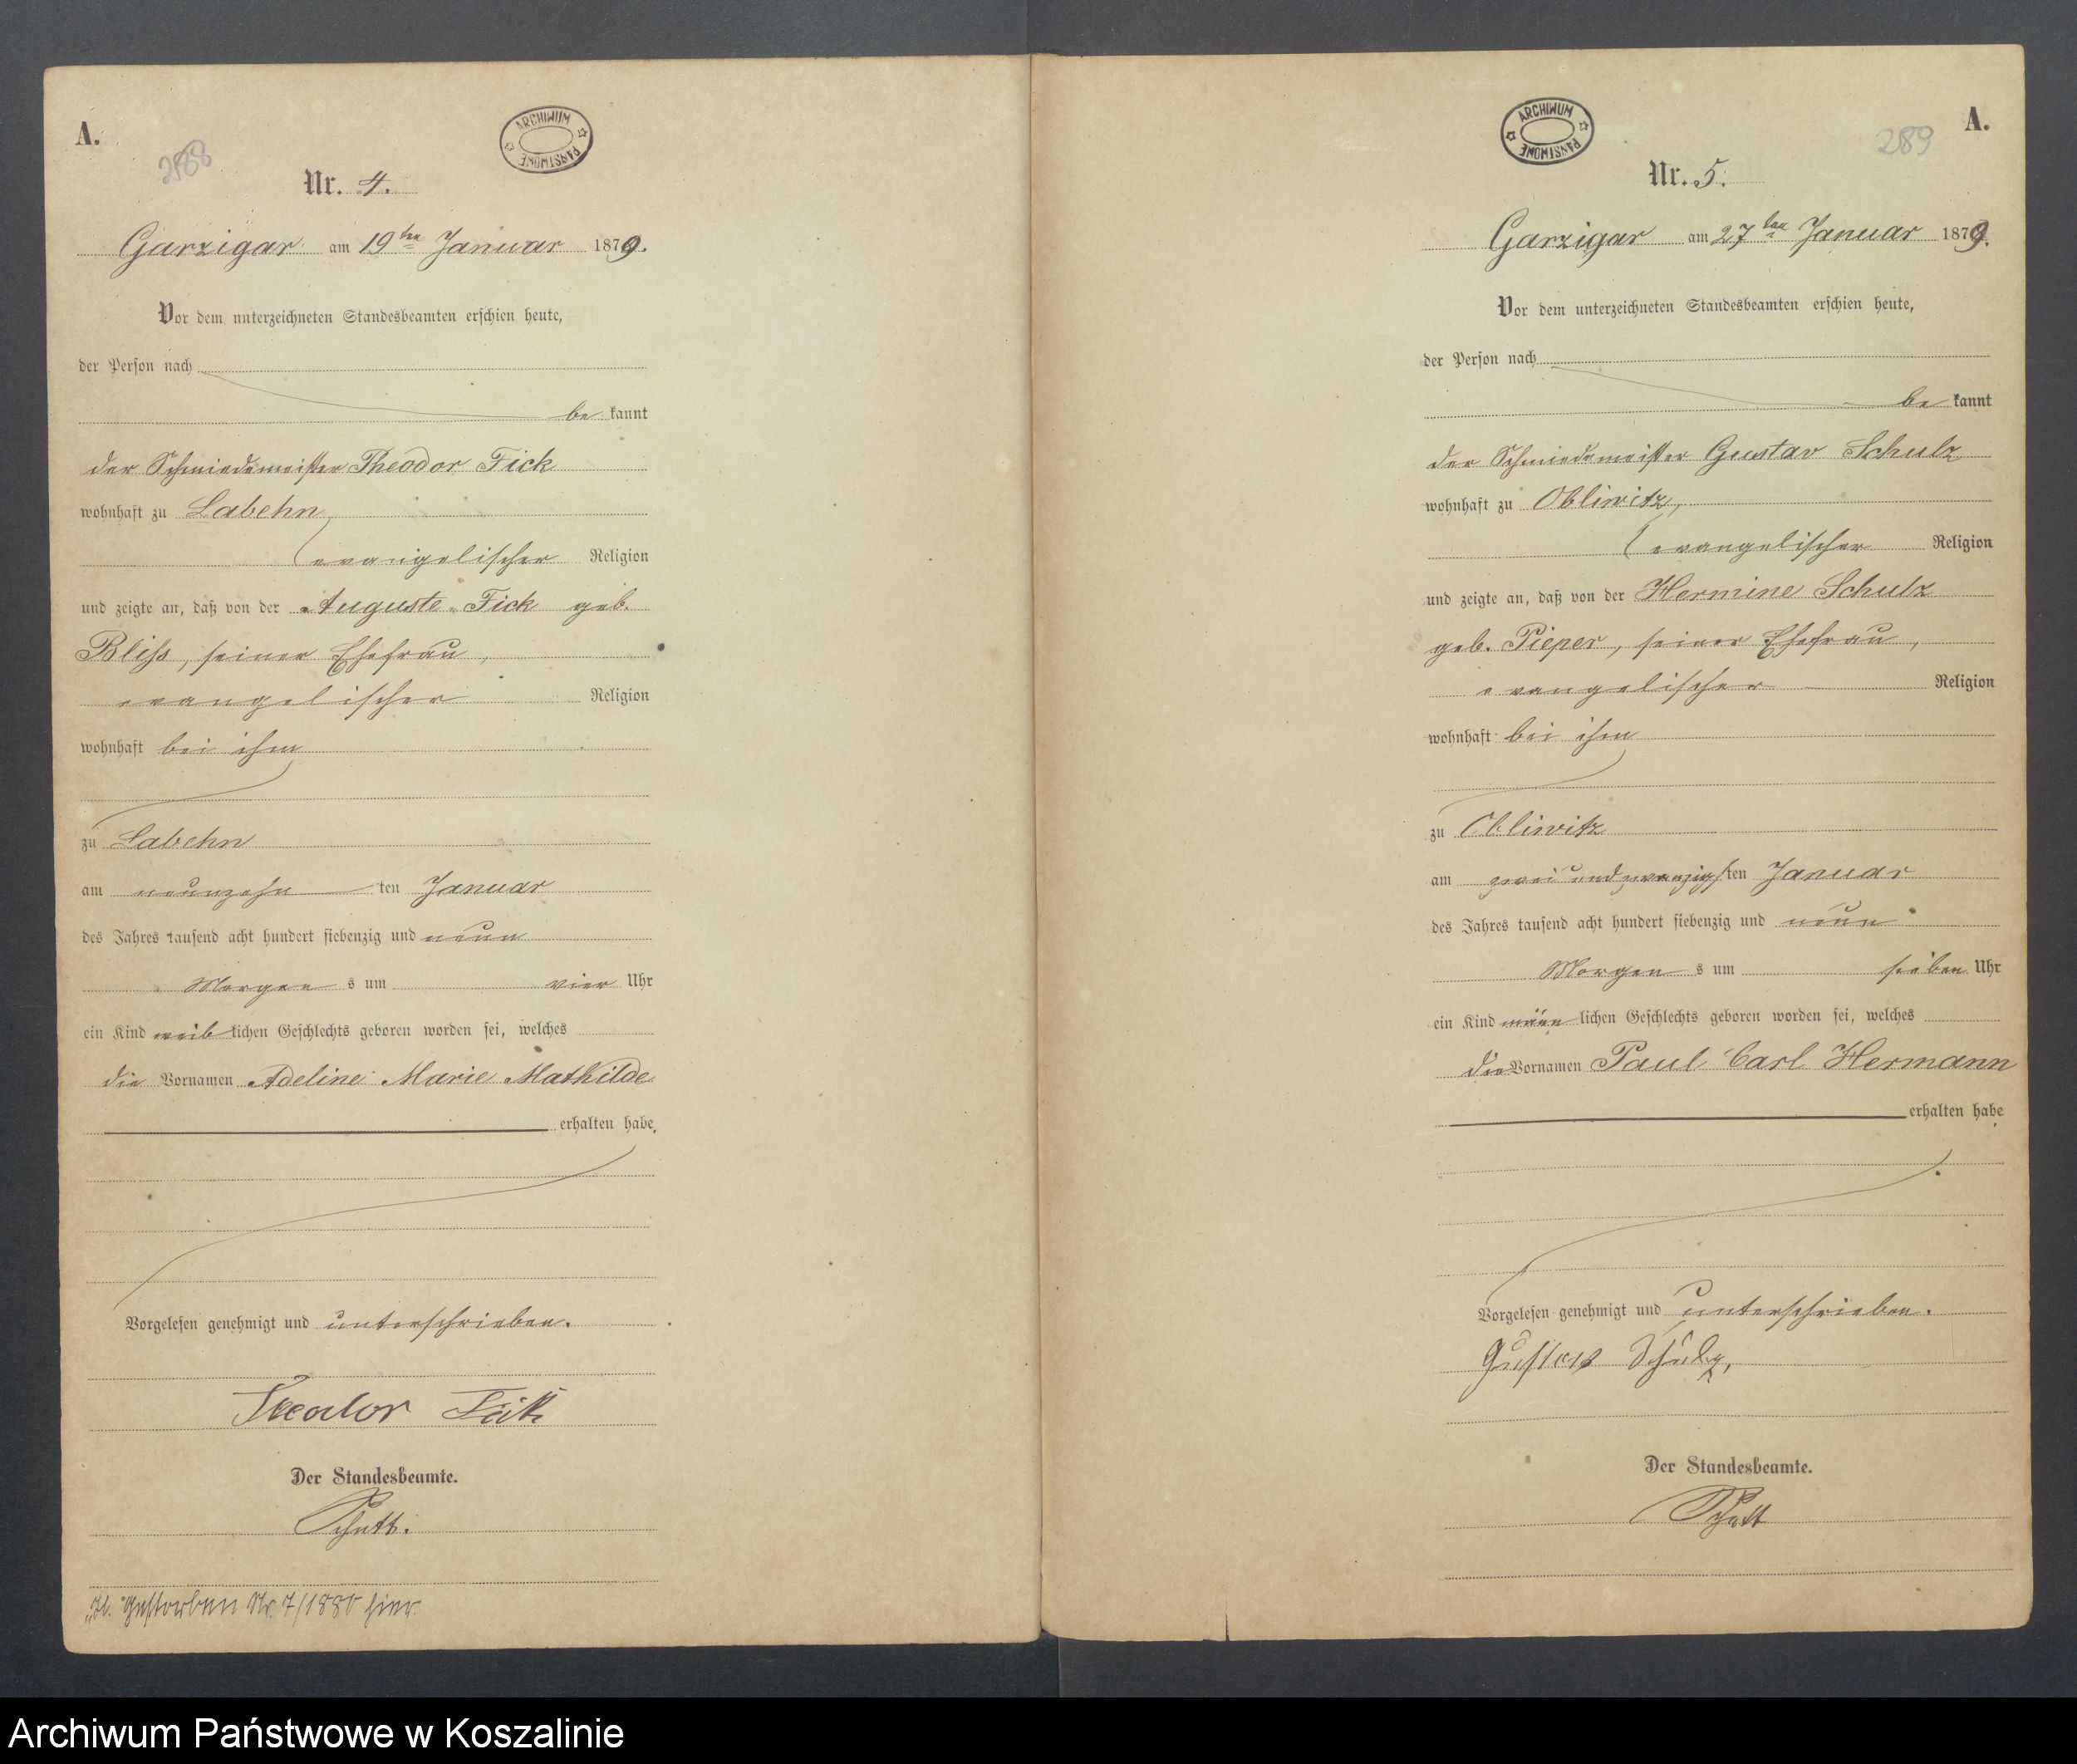 A.
288
ARCHIWUM PAŃSTWOWE
Nr. 4.
Garzigar am 19ten Januar 1879.
Vor dem unterzeichneten Standesbeamten erschien heute,
der Person nach
be kannt
der Schmiedemeister Theodor Fick
wohnhaft zu Labehn,
evangelischer Religion
und zeigte an, daß von der Auguste Fick geb.
Bliss, seiner Ehefrau,
evangelischer Religion
wohnhaft bei ihm
zu Labehn
am neunzehn ten Januar
des Jahres tausend acht hundert siebenzig und neun
Morgen s um vier Uhr
ein Kind weib lichen Geschlechts geboren worden sei, welches
die Vornamen Adeline Marie Mathilde
erhalten habe.
Vorgelesen genehmigt und unterschrieben.
Theodor Fick
Der Standesbeamte.
Gestorben Nr. 7/1880 hier.
A.
289
ARCHIWUM PAŃSTWOWE
Nr. 5.
Garzigar am 27ten Januar 1879.
Vor dem unterzeichneten Standesbeamten erschien heute,
der Person nach
be kannt
der Schmiedemeister Gustav Schulz
wohnhaft zu Obliwitz,
evangelischer Religion
und zeigte an, daß von der Hermine Schulz
geb. Pieper, seiner Ehefrau,
evangelischer Religion
wohnhaft bei ihm
zu Obliwitz
am zwei und zwanzigsten Januar
des Jahres tausend acht hundert siebenzig und neun
Morgen s um sieben Uhr
ein Kind männ lichen Geschlechts geboren worden sei, welches
die Vornamen Paul Carl Hermann
erhalten habe.
Vorgelesen genehmigt und unterschrieben.
Gustav Schulz,
Der Standesbeamte.
Archiwum Państwowe w Koszalinie